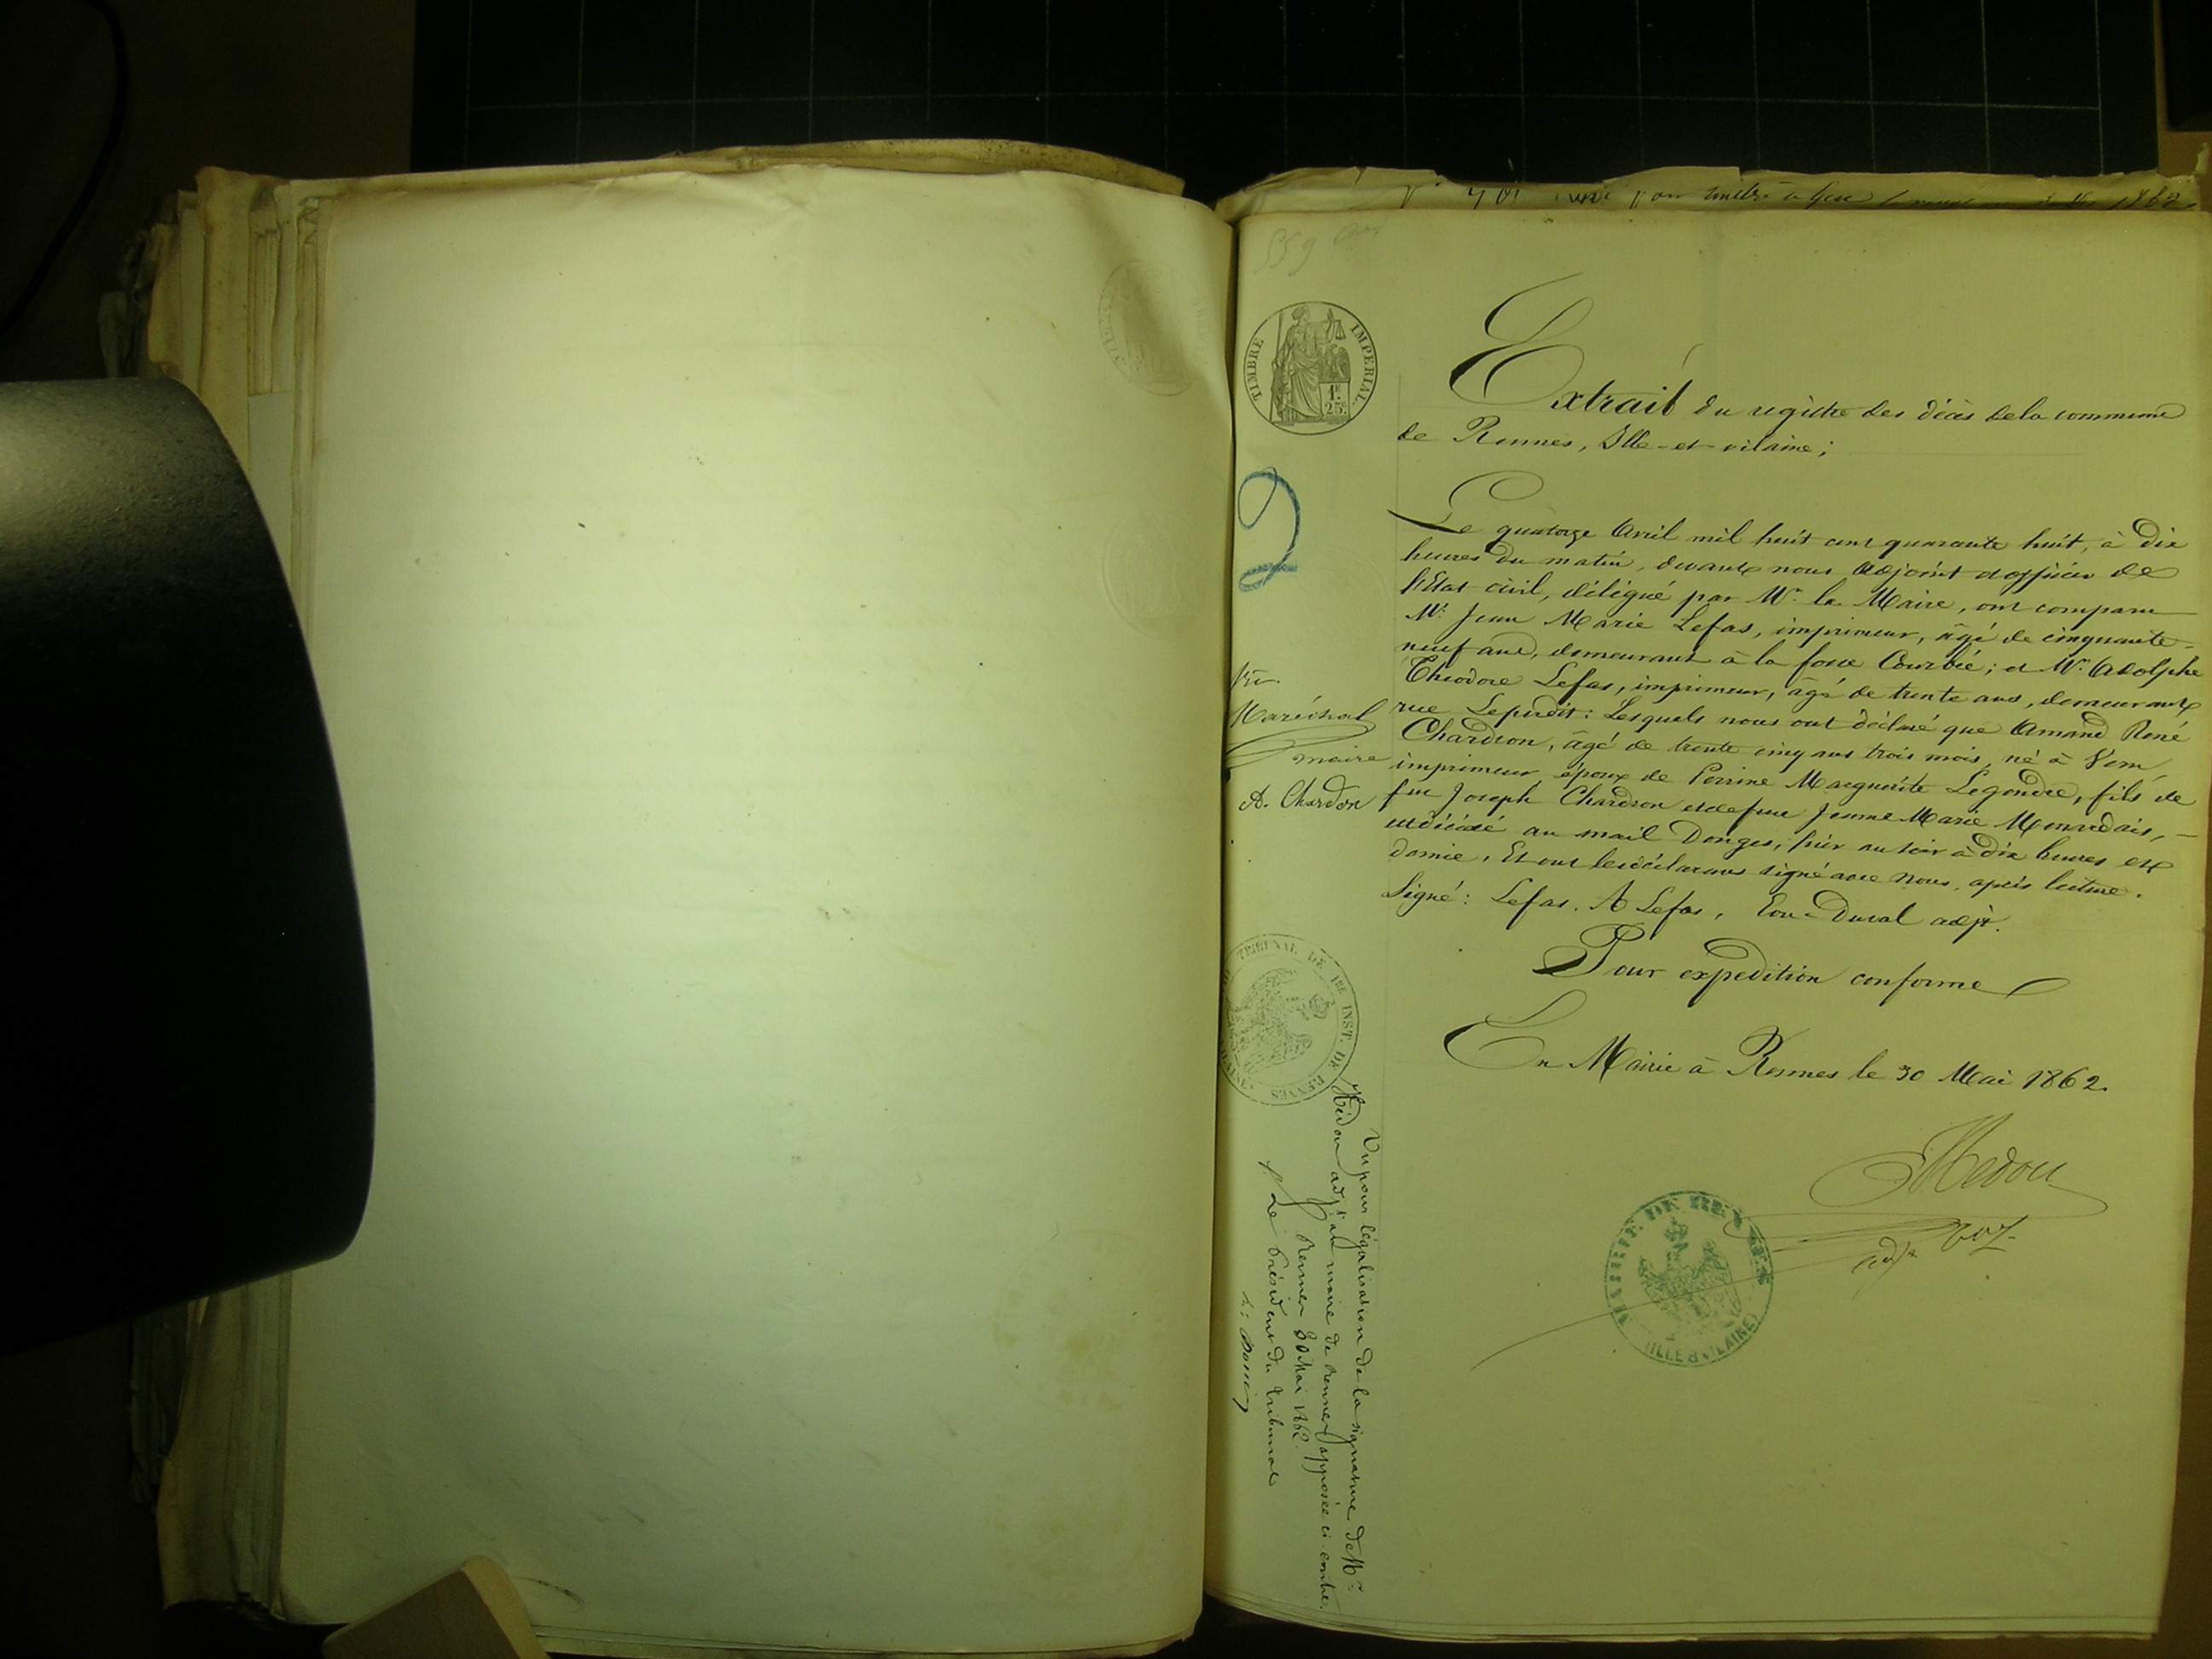 1862
559
TIMBRE IMPERIAL
1F.
25c.
Extrait du registre des décès de la commune
de Rennes, Ille-et-vilaine;
Le quatorze Avril mil huit cent quarante huit, à dix
heures du matin, devant nous Adjoint et officier de
l'Etat civil, délégué par Mr. le Maire, ont comparu
Mr. Jean Marie Lefas, imprimeur, âgé de cinquante-
neuf ans, demeurant à la fosse Courbée; et Mr. Adolphe
Théodore Lefas, imprimeur, âgé de trente ans, demeurant
rue Leperdit: Lesquels nous ont déclaré que Amand René
Chardron, âgé de trente cinq ans trois mois, né à Vern,
imprimeur, époux de Perrine Marguerite Legendre, fils de
feu Joseph Chardron et de feue Jeanne Marie Menardais, -
est décédé au mail Donges, hier au soir à dix heures et
demie. Et ont les déclarans signé avec nous, après lecture.
Signé: Lefas. A Lefas, Duval adjt.
Pour expedition conforme
En Mairie à Rennes le 30 Mai 1862.
Médou
adjt
MAIRIE DE RENNES
(ILLE & VILAINE)
Maréchal
maire
A. Chardon
TRIBUNAL DE 1RE INST. DE RENNES
Vu pour légalisation de la signature de Mr.
Médou adjt au maire de Rennes apposée ci contre.
Rennes 30 Mai 1862.
Le Président du Tribunal